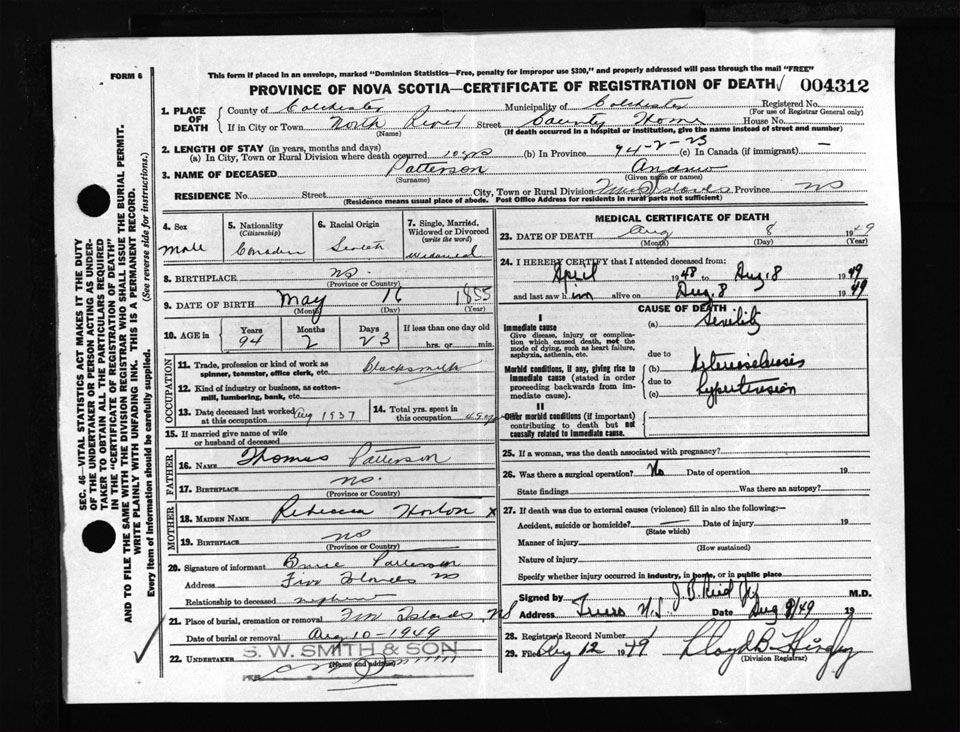 FORM 6
This form if placed in an envelope, marked "Dominion Statistics—Free, penalty for improper use $300," and properly addressed will pass through the mail "FREE"
PROVINCE OF NOVA SCOTIA—CERTIFICATE OF REGISTRATION OF DEATH √ 004312
1. PLACE OF DEATH County of Colchester Municipality of Colchester Registered No.
(For use of Registrar General only)
If in City or Town North River Street County Home House No.
(Name) (If death occurred in a hospital or institution, give the name instead of street and number)
2. LENGTH OF STAY (in years, months and days)
(a) In City, Town or Rural Division where death occurred 10 yrs (b) In Province 94-2-23 (c) In Canada (if immigrant) —
3. NAME OF DECEASED Patterson Andrew
(Surname) (Given name or names)
RESIDENCE No. Street City, Town or Rural Division Five Islands Province NS
(Residence means usual place of abode. Post Office Address for residents in rural parts not sufficient)
4. Sex Male
5. Nationality (Citizenship) Canadian
6. Racial Origin Scotch
7. Single, Married, Widowed or Divorced (write the word) Widowed
8. BIRTHPLACE NS.
(Province or Country)
9. DATE OF BIRTH May 16 1855
(Month) (Day) (Year)
10. AGE in Years 94 Months 2 Days 23 If less than one day old hrs. or min.
OCCUPATION
11. Trade, profession or kind of work as spinner, teamster, office clerk, etc. Blacksmith
12. Kind of industry or business, as cotton-mill, lumbering, bank, etc.
13. Date deceased last worked at this occupation Aug 1937
14. Total yrs. spent in this occupation
15. If married give name of wife or husband of deceased
FATHER
16. NAME Thomas Patterson
17. BIRTHPLACE NS.
(Province or Country)
MOTHER
18. MAIDEN NAME Rebecca Horton x
19. BIRTHPLACE NS
(Province or Country)
20. Signature of informant Bruce Patterson
Address Five Islands NS
Relationship to deceased nephew
21. Place of burial, cremation or removal Five Islands NS
Date of burial or removal Aug 10-1949
22. UNDERTAKER S. W. SMITH & SON
(Name and address)
MEDICAL CERTIFICATE OF DEATH
23. DATE OF DEATH Aug 8 1949
(Month) (Day) (Year)
24. I HEREBY CERTIFY that I attended deceased from:
April 1948 to Aug. 8 1949
and last saw him alive on Aug. 8 1949
CAUSE OF DEATH
I
Immediate cause
Give disease, injury or complication which caused death, not the mode of dying, such as heart failure, asphyxia, asthenia, etc.
(a) Senility
due to
Morbid conditions, if any, giving rise to immediate cause (stated in order proceeding backwards from immediate cause).
(b) Arteriosclerosis
due to
(c) Hypertension
II
Other morbid conditions (if important) contributing to death but not causally related to immediate cause.
25. If a woman, was the death associated with pregnancy?
26. Was there a surgical operation? No Date of operation 19
State findings Was there an autopsy?
27. If death was due to external causes (violence) fill in also the following:—
Accident, suicide or homicide? — Date of injury 19
(State which)
Manner of injury
(How sustained)
Nature of injury
Specify whether injury occurred in industry, in home, or in public place
Signed by J. B. Reid M.D.
Address Truro N.S. Date Aug 9/49 19
28. Registrar's Record Number 1
29. Filed Aug 12 1949
(Division Registrar)
SEC. 46—VITAL STATISTICS ACT MAKES IT THE DUTY
OF THE UNDERTAKER OR PERSON ACTING AS UNDER-
TAKER TO OBTAIN ALL THE PARTICULARS REQUIRED
IN THE "CERTIFICATE OF REGISTRATION OF DEATH"
AND TO FILE THE SAME WITH THE DIVISION REGISTRAR WHO SHALL ISSUE THE BURIAL PERMIT.
WRITE PLAINLY WITH UNFADING INK. THIS IS A PERMANENT RECORD.
Every item of information should be carefully supplied. (See reverse side for instructions.)